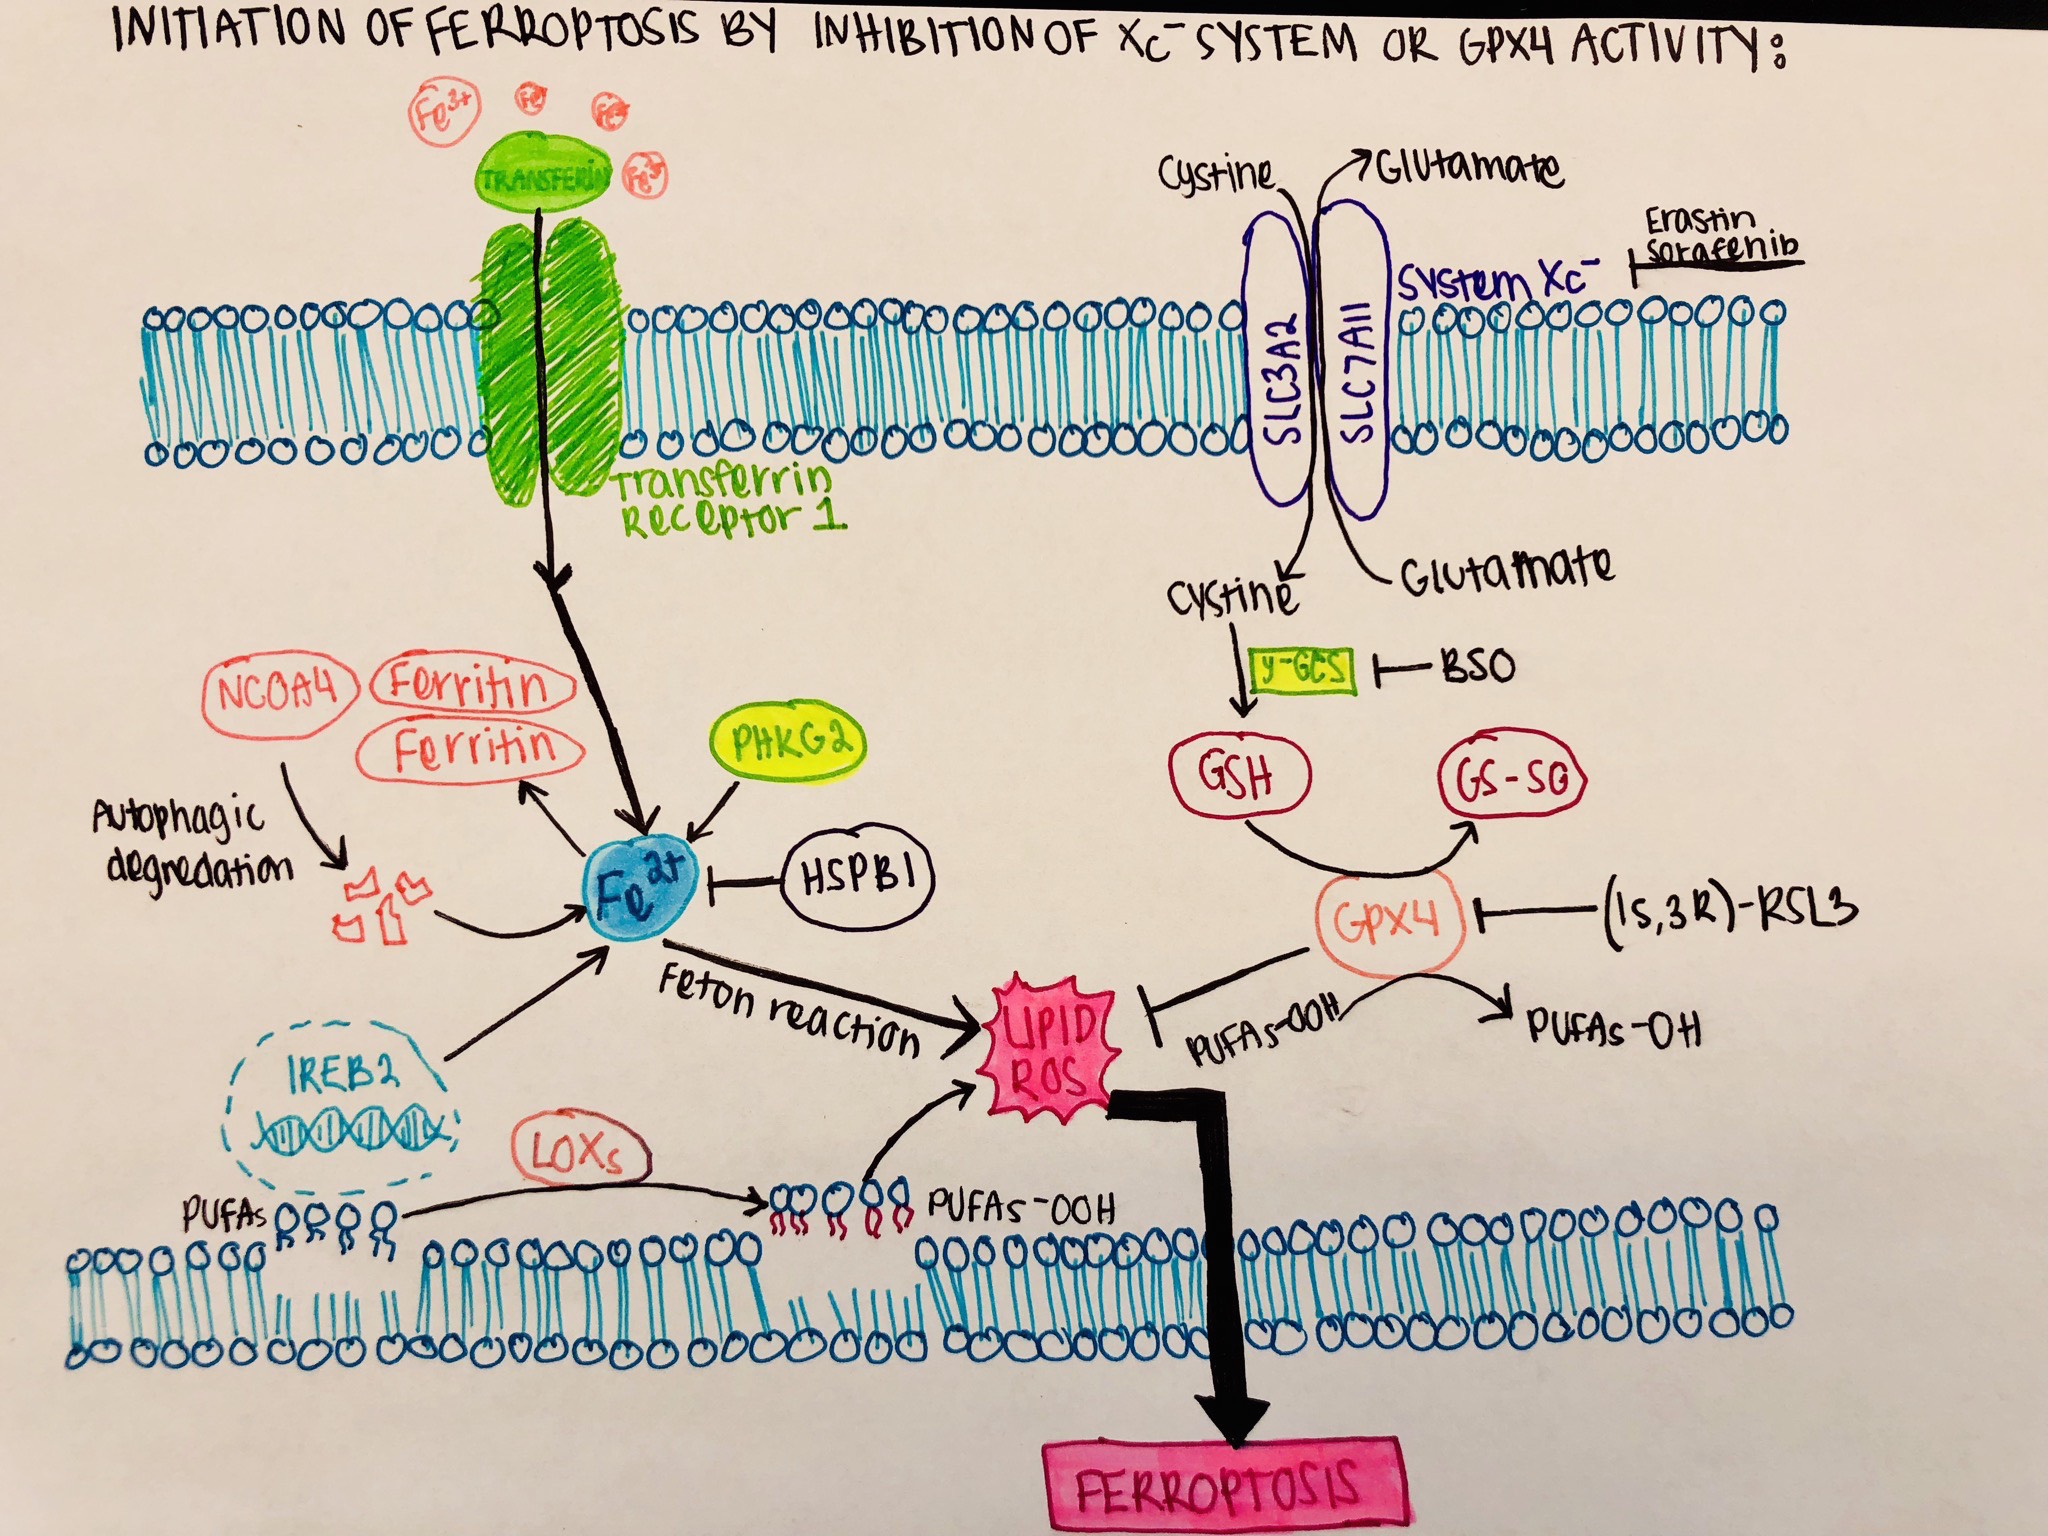 INITIATION OF FERROPTOSIS BY INHIBITION OF Xc⁻ SYSTEM OR GPX4 ACTIVITY:
Fe³⁺
Fe
Fe
TRANSFERIN
Fe³⁺
Cystine
Glutamate
Erastin
Sorafenib
System Xc⁻
SLC3A2
SLC7A11
Transferrin
Receptor 1
Cystine
Glutamate
NCOA4
Ferritin
Ferritin
PHKG2
y-GCS
BSO
GSH
GS-SG
Autophagic
degredation
Fe²⁺
HSPB1
GPX4
(1S,3R)-RSL3
Feton reaction
LIPID
ROS
PUFAs-OOH
PUFAs-OH
IREB2
LOXs
PUFAs
PUFAs-OOH
FERROPTOSIS